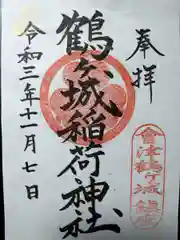 奉拝
鶴ヶ城稲荷神社
令和三年十一月七日
會津鶴ヶ城鎮守